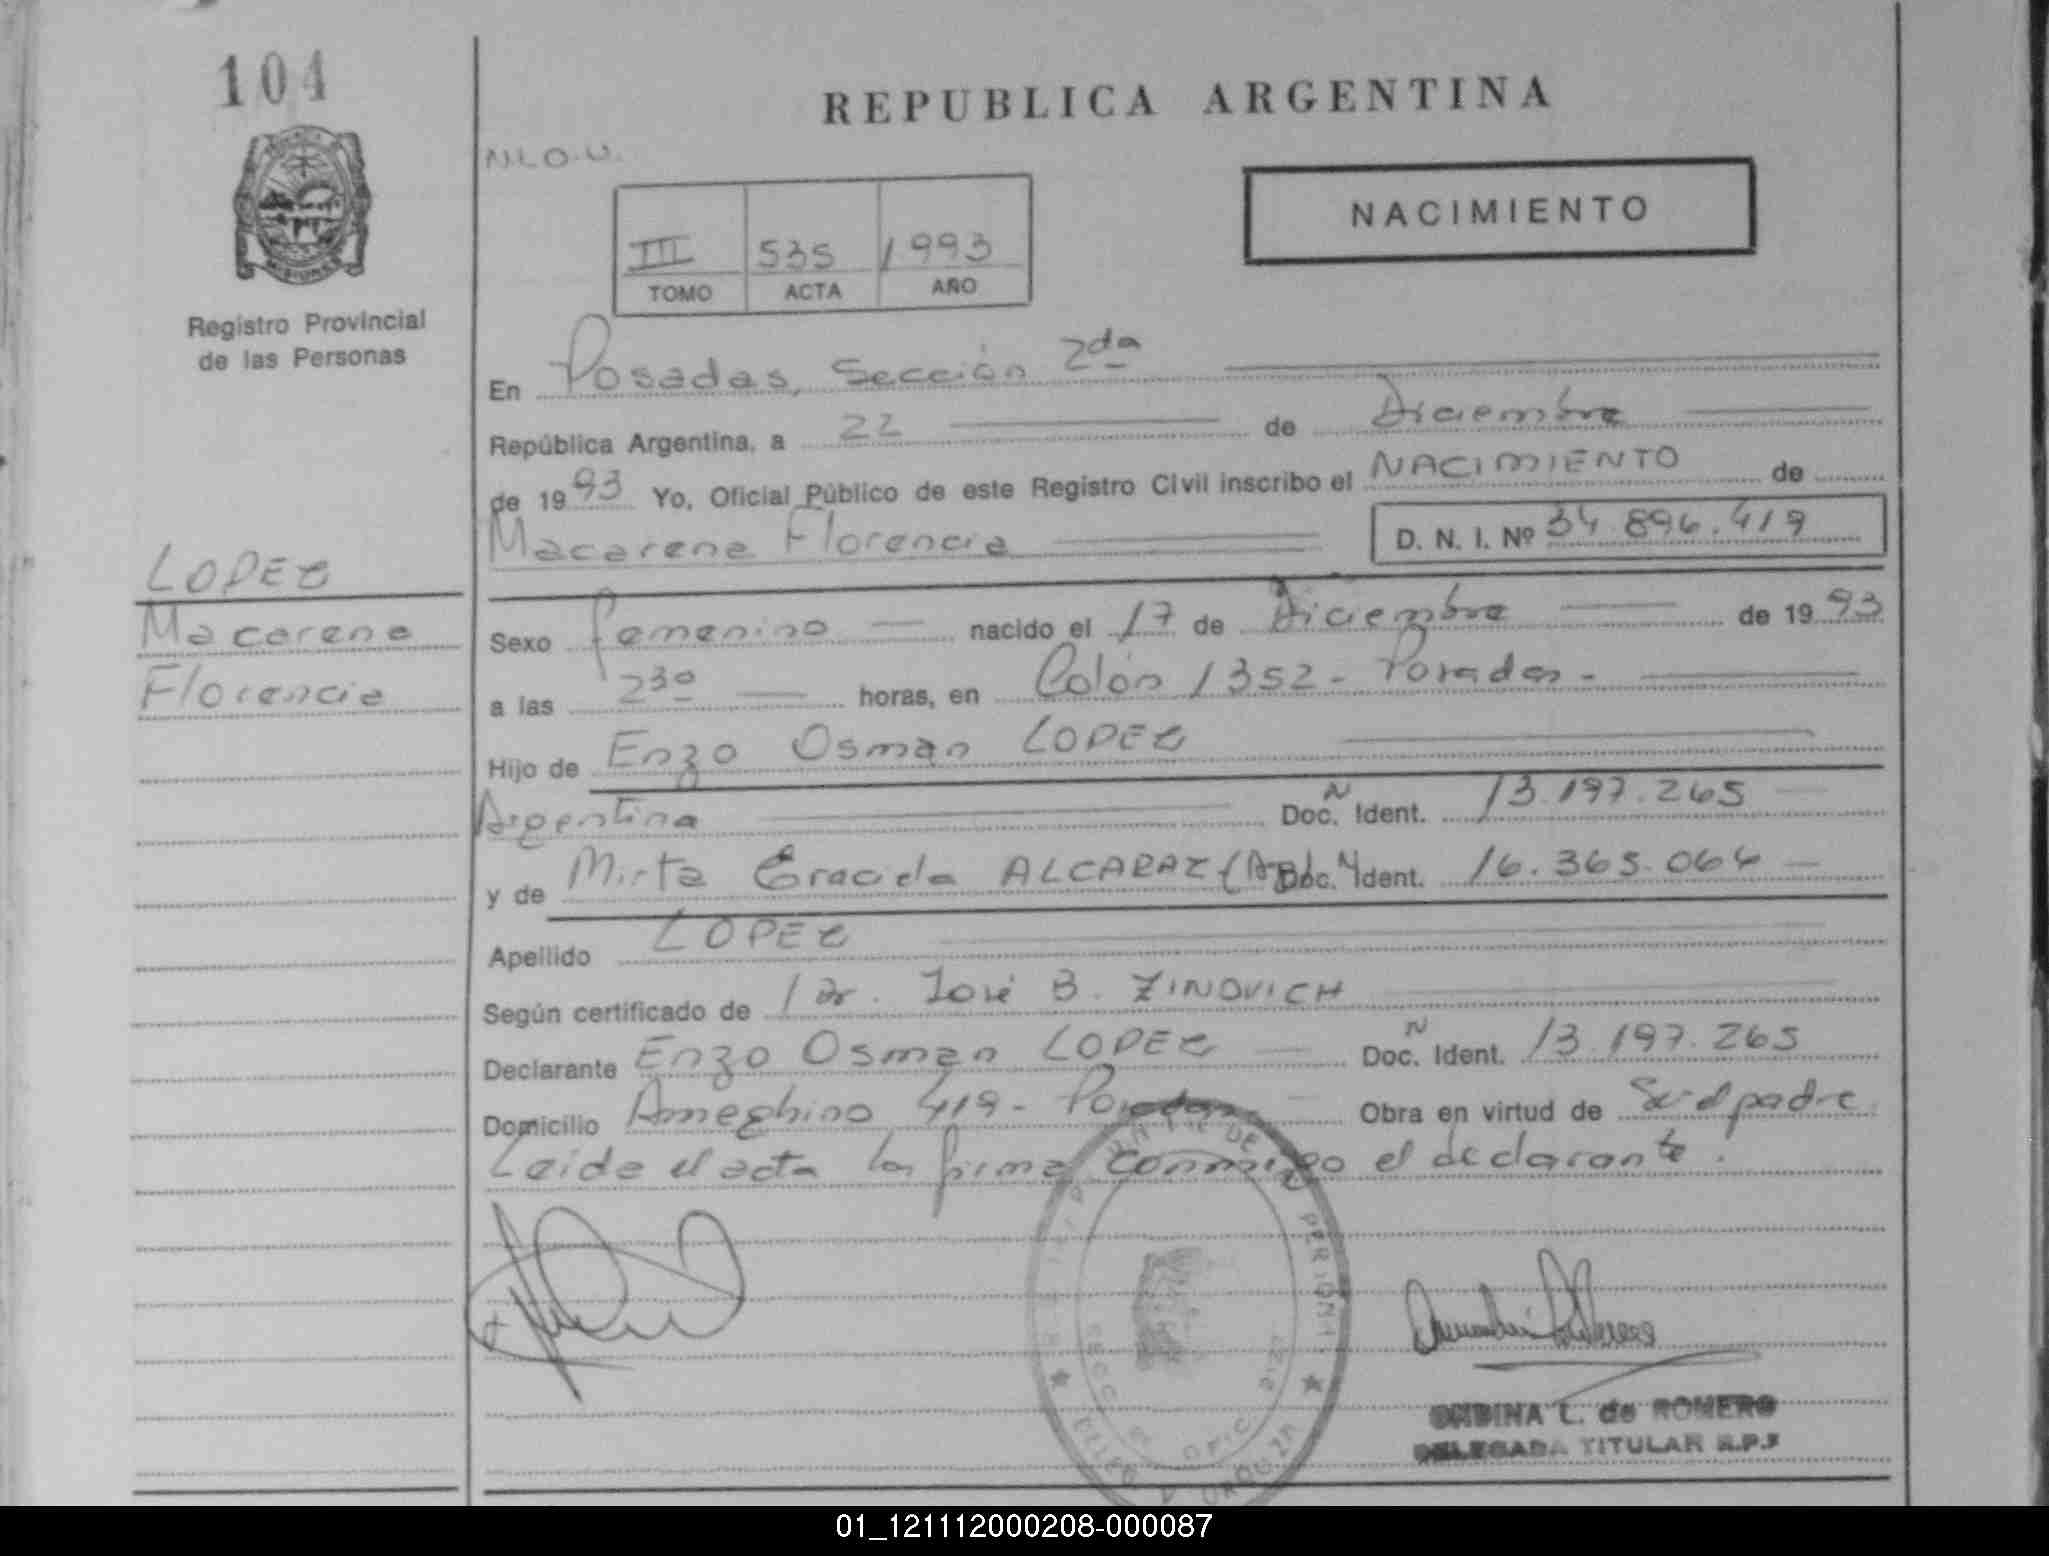 104
REPUBLICA ARGENTINA
NACIMIENTO
III 535 1993
TOMO ACTA AÑO
MISIONES
Registro Provincial
de las Personas
En Posadas, Sección 2da
República Argentina, a 22 de Diciembre
de 1993 Yo, Oficial Público de este Registro Civil inscribo el NACIMIENTO de
Macarena Florencia D. N. I. Nº 34.896.419
LOPEZ
Macarena
Florencia
Sexo femenino nacido el 17 de Diciembre de 1993
a las 23º horas, en Colón 1352 - Posadas -
Hijo de Enzo Osman LOPEZ
Argentina Doc. N Ident. 13.197.265
y de Mirta Graciela ALCARAZ Doc. Ident. 16.365.064
Apellido LOPEZ
Según certificado de Dr. José B. ZINOVICH
Declarante Enzo Osman LOPEZ Doc. N Ident. 13.197.265
Domicilio Ameghino 419 - Posadas Obra en virtud de Ser el padre
Leida el acta la firma conmigo el declarante.
ONDINA L. de ROMERO
DELEGADA TITULAR R.P.P
01_121112000208-000087